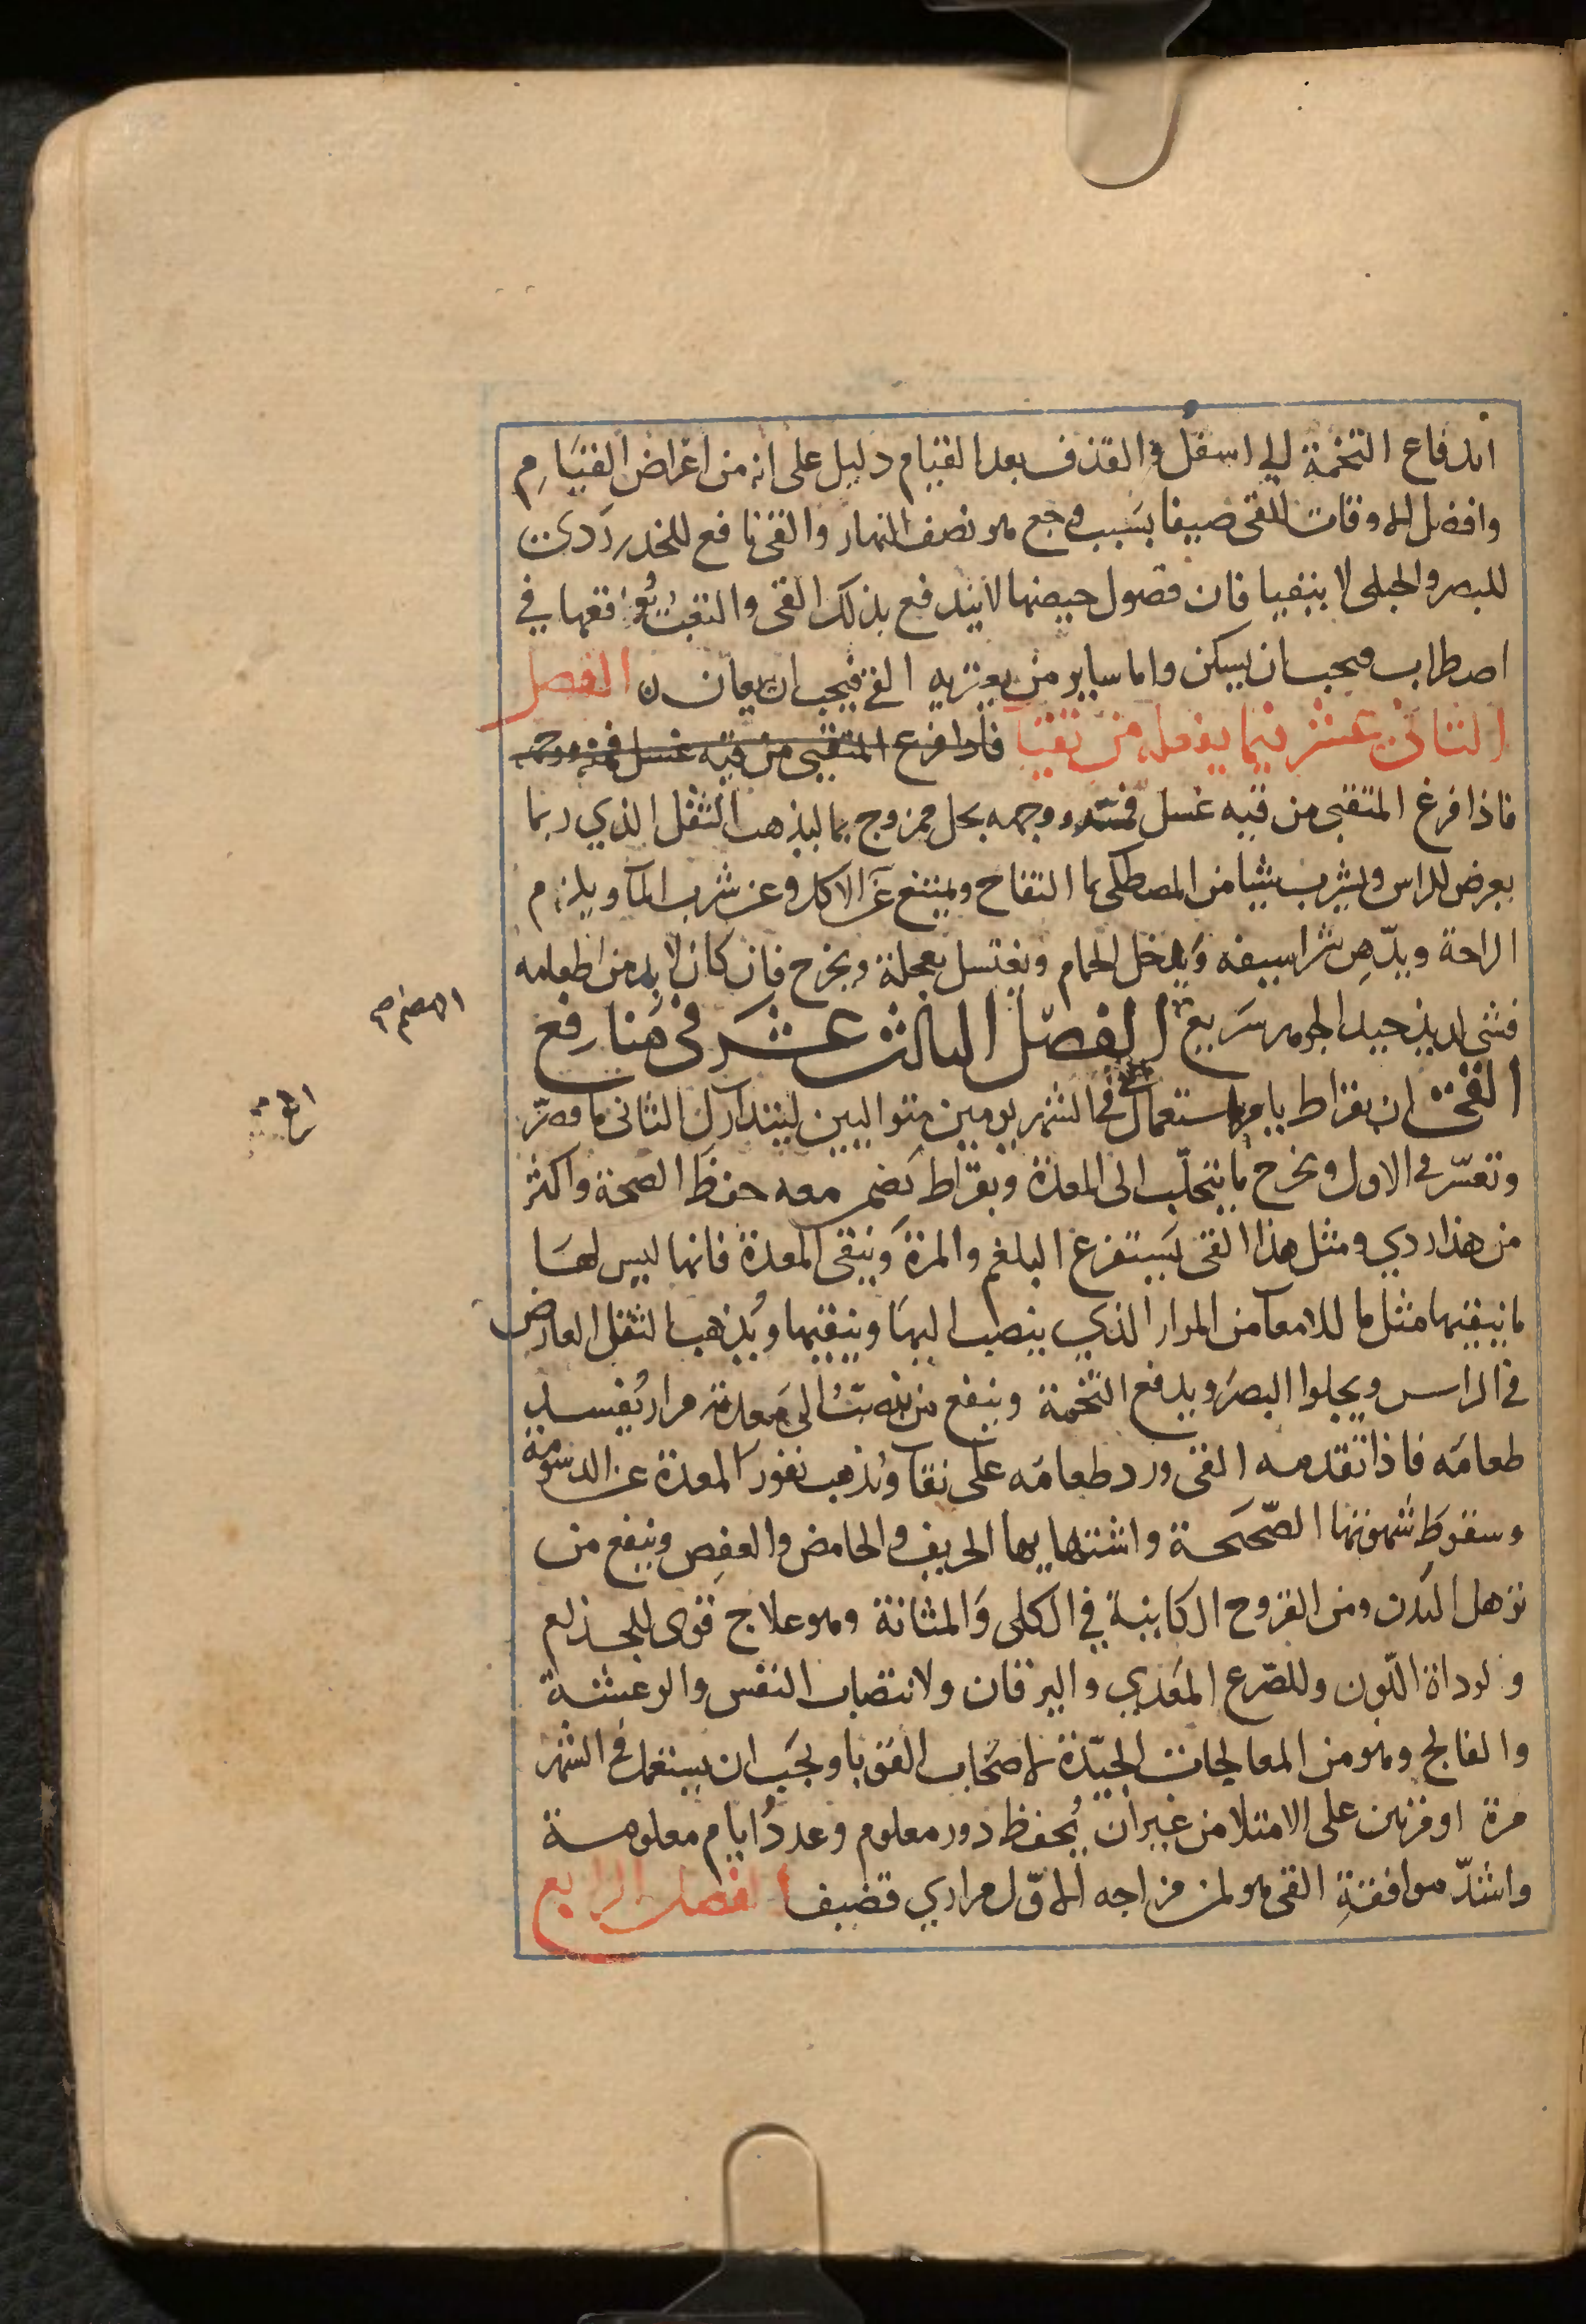 اندفاع التخمة الى اسفل والقذف بعد القيام دليل على انه من اعراض القيام
وافضل الاوقات للقى صيفا بسبب وجع هو نصف النهار والقى نافع للخدر ردى
للبصر والحبلى لا ينقيا فان فصول حيضها لا يندفع بذلك القى والتعب يوقعها في
اصطراب فيجب ان يسكن واما ساير من يعتريه القى فيجب ان يعان ن الفصل
الثانى عشر فيما يفعله من تقيا فاذا فرغ المتقيى من قيه غسل فمه ووجه
فاذا فرغ المتقيى من قيه غسل فمه ووجهه بخل ممزوج بما ليذهب الثقل الذي ربما
يعرض للراس ويشرب شيا من المصطكى بما التفاح ويمتنع عن الاكل وعن شرب الما ويلزم
الراحة ويدهن شراسيفه ويدخل الحمام ويغتسل بعجلة ويخرج فان كان لا بد من اطعامه
فشى لذيذ جيد الجوهر سريع الفصل الثالث عشر فى منافع
الهضم صح
القى ان بقراط يامر باستعمال القى فى الشهر يومين متواليين ليتدارك الثانى ما قصر
وتعسر فى الاول ويخرج ما يتحلب الى المعدة وبقراط يضمن معه حفظ الصحة واكثر
من هذا ردي ومثل هذا القى يستفرغ البلغم والمرة وينقى المعدة فانها ليس لها
ما ينقيها مثل ما للامعا من المرار الذي ينصب اليها وينقيها ويذهب الثقل العارض
فى الراس ويجلوا البصر ويدفع التخمة وينفع من ينصب الى معدته مرار يفسد
طعامه فاذا تقدمه القى ورد طعامه على نقا ويذهب نفور المعدة عن الدسومة
وسقوط شهوتها الصحيحة واشتهايها الحريف والحامض والعفص وينفع من
ترهل البدن ومن القروح الكاينة في الكلى والمثانة وهو علاج قوى للجذام
ولرداة اللون وللصرع المعدي واليرقان ولانتصاب النفس والرعشة
والفالج وهو من المعالجات الجيدة لاصحاب القوبا ويجب ان يستعمل فى الشهر
مرة او مرتين على الامتلا من غير ان يحفظ دور معلوم وعدد ايام معلومة
واشد موافقة القى هو لمن مزاجه الاول مراري قضيف الفصل الرابع